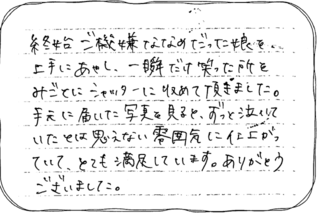 終始ご機嫌ななめだった娘を、
上手にあやし、一瞬だけ笑った所を
みごとにシャッターに収めて頂きました。
手元に届いた写真を見ると、ずっと泣いて
いたとは思えない雰囲気に仕上がっ
ていて、とても満足しています。ありがとう
ございました。